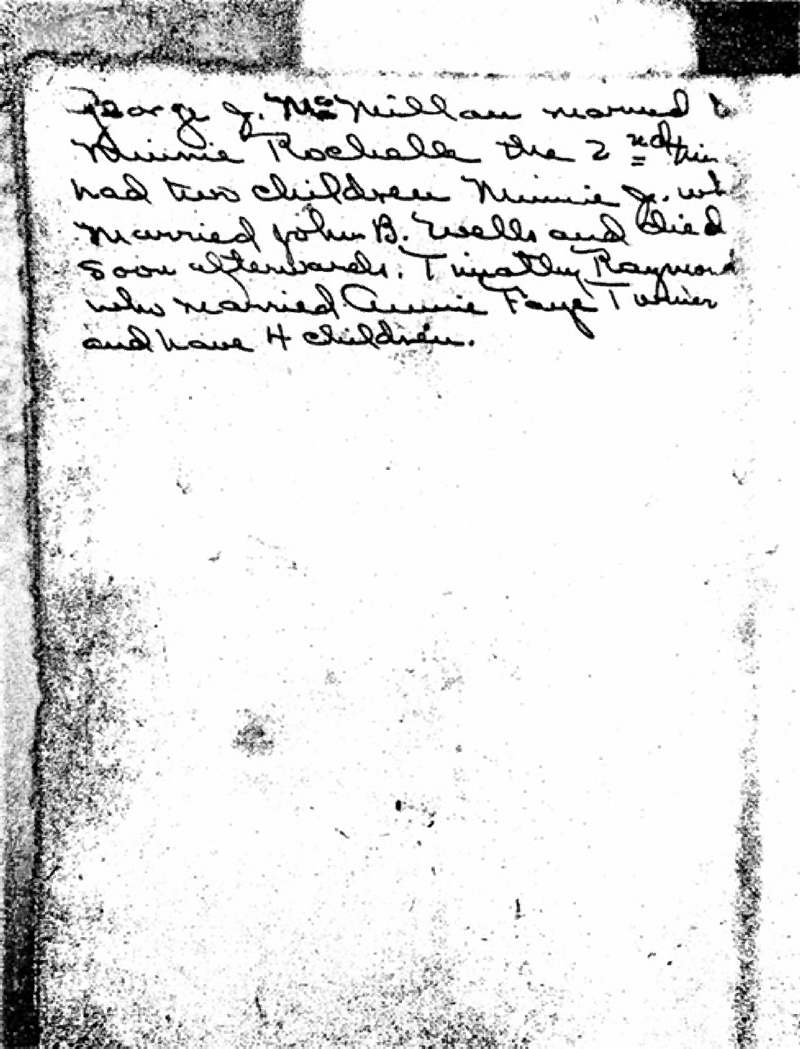 George J. McMillan married
Minnie Rochelle the 2nd
had two children Minnie Jr.
married John B. Wells and died
soon afterwards. Timothy Raymond
who married Annie Faye Turner
and have 4 children.